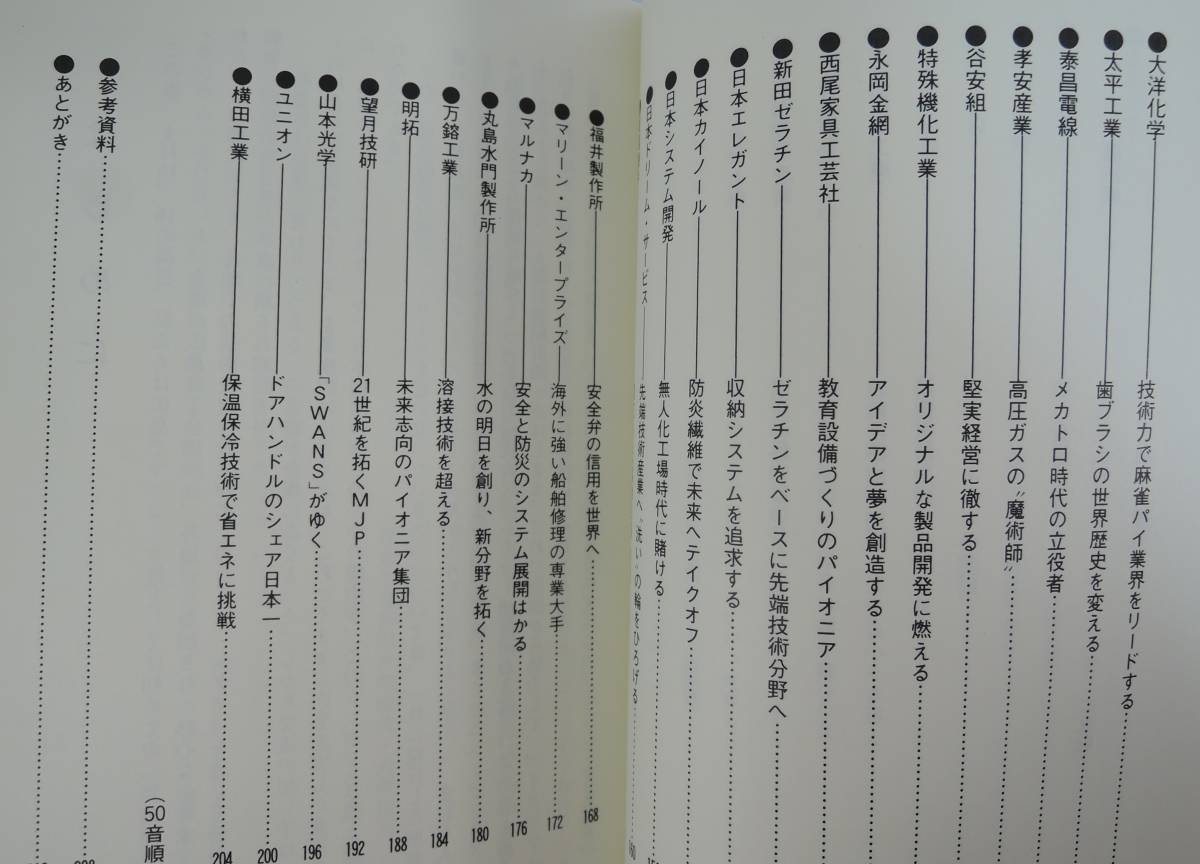 ●大洋化学──技術力で麻雀パイ業界をリードする……
●太平工業──歯ブラシの世界歴史を変える……
●泰昌電線──メカトロ時代の立役者……
●孝安産業──高圧ガスの〝魔術師〟……
●谷安組──堅実経営に徹する……
●特殊機化工業──オリジナルな製品開発に燃える……
●永岡金網──アイデアと夢を創造する……
●西尾家具工芸社──教育設備づくりのパイオニア……
●新田ゼラチン──ゼラチンをベースに先端技術分野へ……
●日本エレガント──収納システムを追求する……
●日本カイノール──防炎繊維で未来へテイクオフ……
●日本システム開発──無人化工場時代に賭ける……
●日本ドリーム・サービス──先端技術産業へ〝洗い〟の輪をひろげる……160
●福井製作所──安全弁の信用を世界へ……168
●マリーン・エンタープライズ──海外に強い船舶修理の専業大手……172
●マルナカ──安全と防災のシステム展開はかる……176
●丸島水門製作所──水の明日を創り、新分野を拓く……180
●万鎔工業──溶接技術を超える……184
●明拓──未来志向のパイオニア集団……188
●望月技研──21世紀を拓くMJP……192
●山本光学──「SWANS」がゆく……196
●ユニオン──ドアハンドルのシェア日本一……200
●横田工業──保温保冷技術で省エネに挑戦……204
(50音順
●参考資料……
●あとがき……